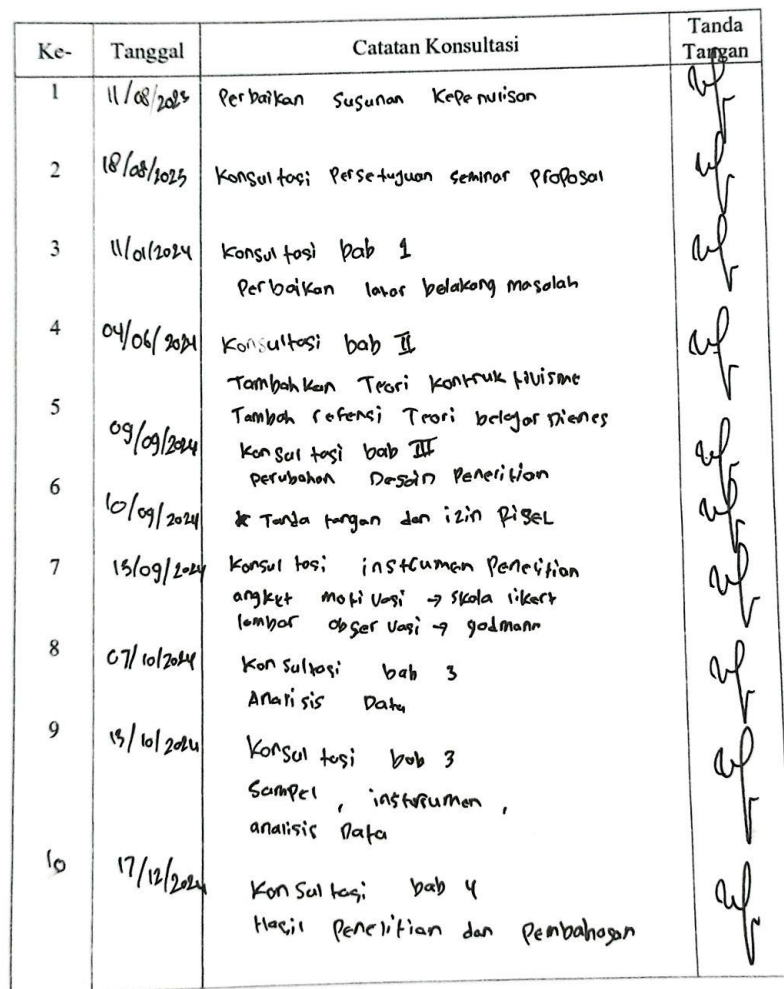 Ke- Tanggal Catatan Konsultasi Tanda Tangan
1 11/08/2023 Perbaikan Susunan Kepenulisan
2 18/08/2023 Konsultasi Persetujuan seminar Proposal
3 11/01/2024 Konsultasi bab 1
Perbaikan latar belakang masalah
4 04/06/2024 Konsultasi bab II
Tambahkan Teori Kontruktivisme
5 Tambah refensi Teori belajar Dienes
09/09/2024 Konsultasi bab III
perubahan Desain Penelitian
6 10/09/2024 Tanda tangan dan izin Riset
7 13/09/2024 Konsultasi instrumen Penelitian
angket motivasi → skala likert
lembar observasi → godmann
8 07/10/2024 Konsultasi bab 3
Analisis Data
9 13/10/2024 Konsultasi bab 3
Sampel , instrumen ,
analisis Data
10 17/12/2024 Konsultasi bab 4
Hasil Penelitian dan Pembahasan